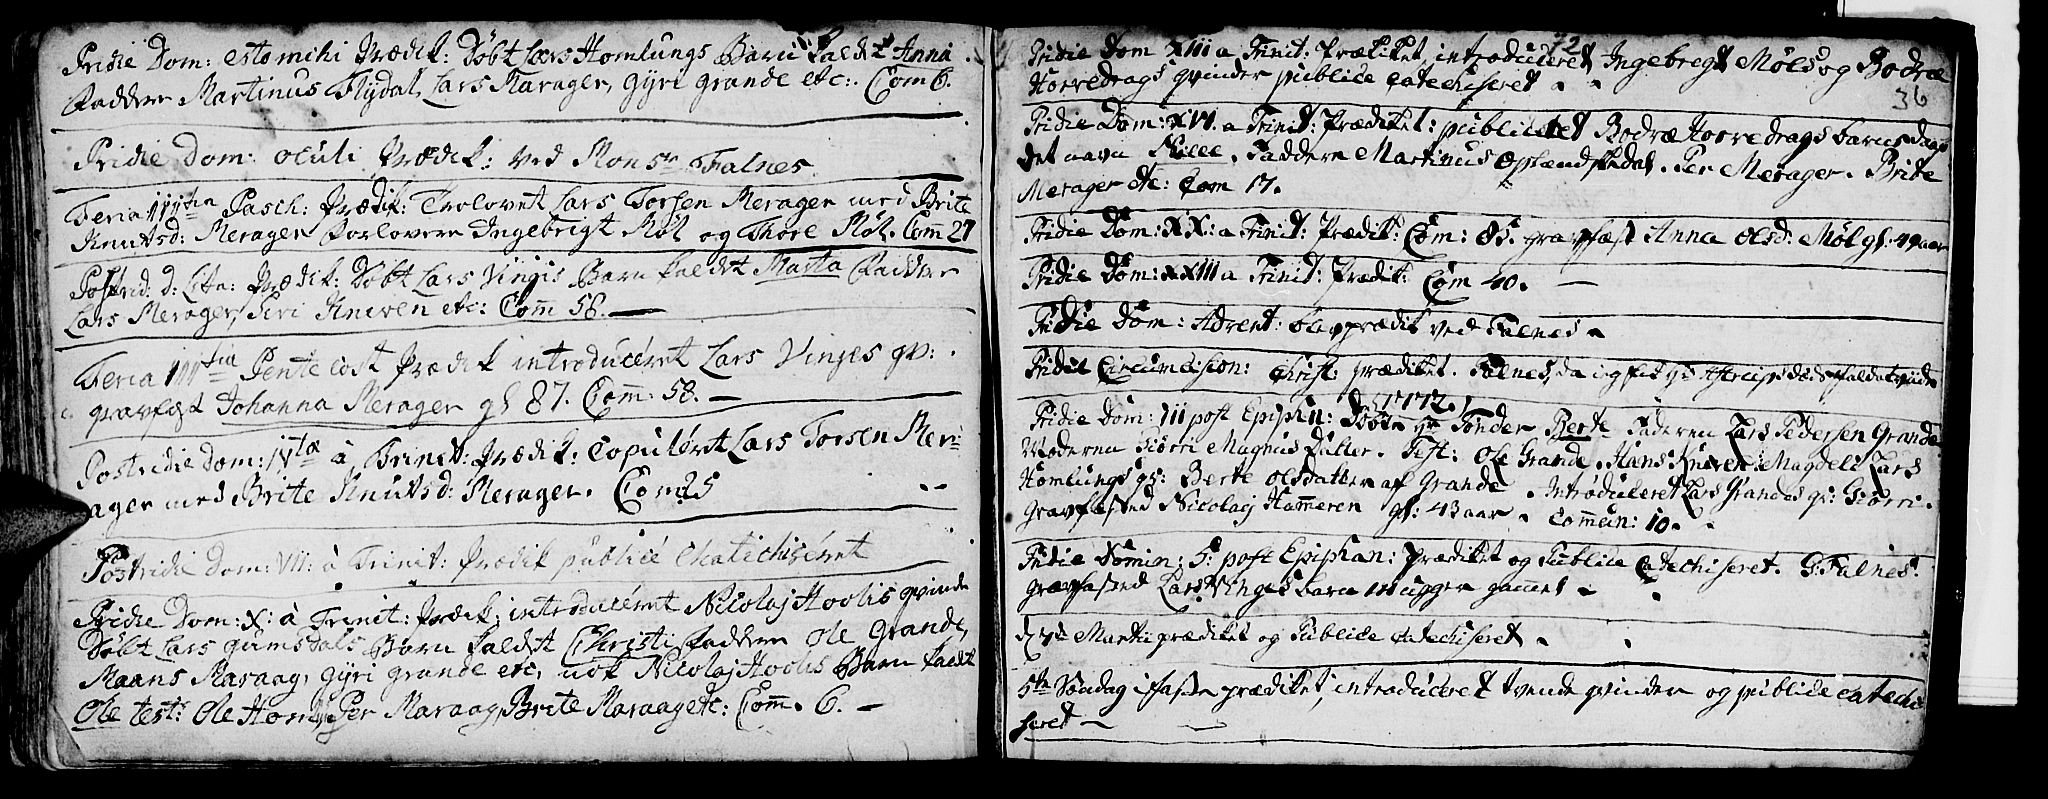 Pridie Dom: estomihi Prædik: Døbt Lars Homlungs Barn kaldt Anna
faddere Martinus Flydal, Lars Marager, gÿri grande etc:. Com 6.
Pridie Dom: oculi Prædik: ved Monsr Falnes.
Feria IIItia Pasch: Prædik: Trolovet Lars Torsen Merager med Brite
Knutsd: Merager forlovere Ingebrigt Møl og Thore Møl. Com̅ 27
Postrid: d: Præedik: Døbt Lars Vinjis Barn kaldet Marta Faddere
Lars Merager, Siri Kneven etc: Com̅ 58.
Feria IIItia Pentecost Prædik introduceret Lars Vinges qv:
gravfæst Johanna Merager gl 87. Com̅: 58. —
Postridie Dom: IVta à Trinit: Prædik: Copuleret Lars Torsen Mer:
ager med Brite Knutsd: Merager. Com 25
Postridie Dom: VII: à Trinit: Prædik publicé Chatechiséret
Pridie Dom: X: à Trinit: Prædik: introducéret Nicolaj Hoolis qvinde
Døbt Lars gumsdals Barn kaldt Christi faddere Ole Grande,
Maans Maraag, gÿri grande etc, nok Nicolaj Hoolis Barn kaldt
Ole test: Ole Per Maraag, Brite Maraag etc: Com̅. 6. —
72
Pridie Dom XIII a Trinit: Prædiket, introduceret Ingebregt Møls og Bodræ
Horredrags qvinder publice catechiseret
36
Pridie Dom: XVI. a Trinit: Prædiket: publiceret Bodræ Horredrags barns daab
det navn Faddere Martinus Per Merager. Brite
Merager etc: Com 17.
Pridie Dom: XX: a Trinit: Prædik: Com: 85. gravfæst Anna Olsd: Møl gl: 49 aar
Pridie Dom: XXIII a Trinit: Prædik: Com 40. —
Pridie Dom: Advent: blev prædik ved Falnes
Pridie Circumcision: Christ: prædiket. Falnes, da jeg
1772.
Pridie Dom: III post Epiphan: Døbt Tønder Berte Faderen Lars Pedersen Grande
Moderen Siørri Magnus Datter. Test: Ole Grande, Hans Kneven: Magdeli Lars
Homlungs qv: Berte Olsdatter af Grande. Introduceret Lars Grandes qv: Siørri.
Gravfæsted Nicolaj Ham̅eren gl: 43 aar. Com̅un: 10.
Pridie Domin: 5: post Epiphan: Prædiket og Publice Catechiseret. S: Falnes.
Gravfæsted Lars Vinges barn uger gam̅el
d 7de Martii prædiket og Publice catechiseret
5te Søndag i faste prædiket, introduceret tvende qvinder og publice catechi
seret —